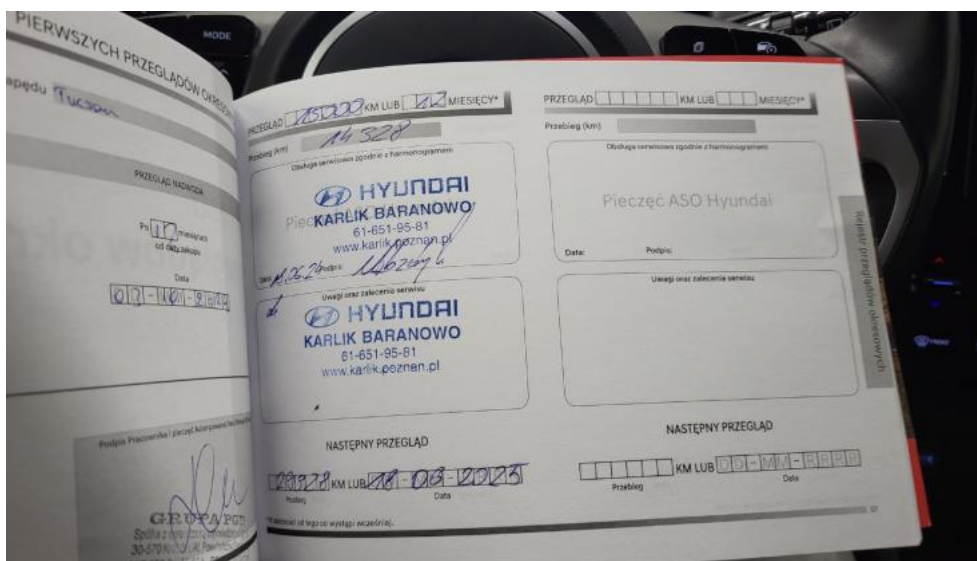 MODE
PIERWSZYCH PRZEGLĄDÓW
Tucson
PRZEGLĄD NADWOZIA
Po 12 miesiącach
od daty zakupu
Data
Podpis Pracownika i pieczęć
GRUPA PGD
PRZEGLĄD 15000 KM LUB 12 MIESIĘCY*
Przebieg (km) 14 328
Obsługa serwisowa zgodnie z harmonogramem
HYUNDAI
KARLIK BARANOWO
61-651-95-81
www.karlik.poznan.pl
Data: Podpis:
Uwagi oraz zalecenia serwisu
HYUNDAI
KARLIK BARANOWO
61-651-95-81
www.karlik.poznan.pl
NASTĘPNY PRZEGLĄD
KM LUB
Przebieg Data
PRZEGLĄD KM LUB MIESIĘCY*
Przebieg (km)
Obsługa serwisowa zgodnie z harmonogramem
Pieczęć ASO Hyundai
Data: Podpis:
Uwagi oraz zalecenia serwisu
NASTĘPNY PRZEGLĄD
KM LUB DD-MM-RRRR
Przebieg Data
Rejestr przeglądów okresowych
FRONT